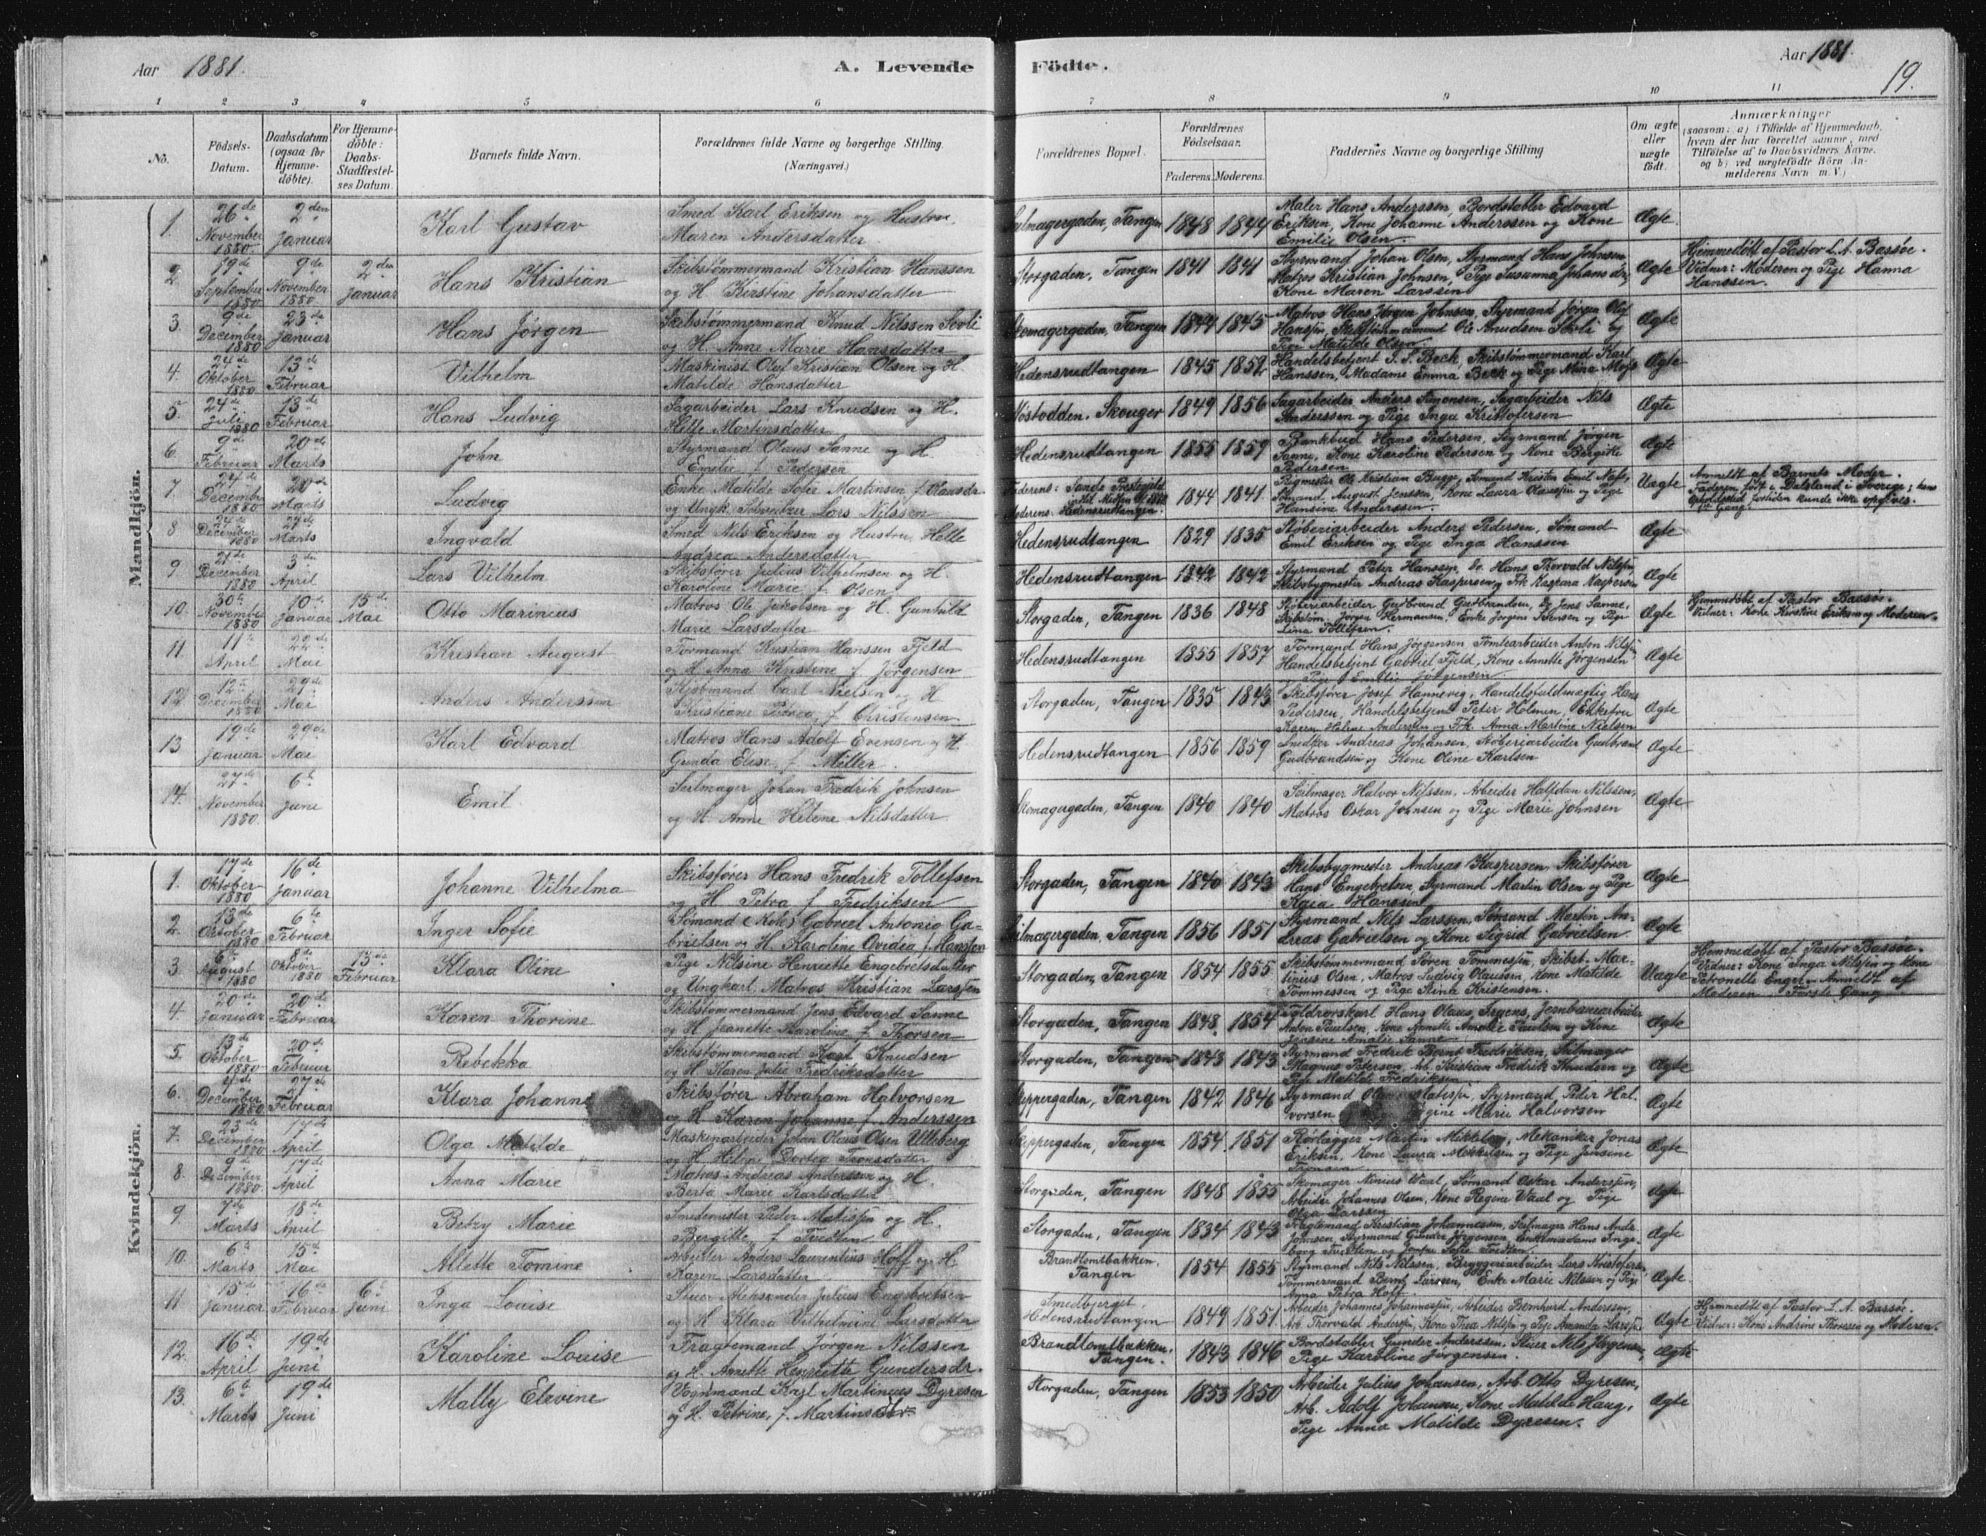 Aar 1881. A. Levende Födte. Aar 1881.
19.
1 2 3 4 5 6 7 8 9 10 11
No. Födsels-Datum. Daabsdatum (ogsaa för Hjemmedöbte). For Hjemmedöbte: Daabs-Stadfæstelses Datum. Barnets fulde Navn. Forældrenes fulde Navne og borgerlige Stilling. (Næringsvei.) Forældrenes Bopæl. Forældrenes Födselsaar. Faderens. Moderens. Faddernes Navne og borgerlige Stilling Om ægte eller uægte födt. Anmærkninger (saasom: a) i Tilfælde af Hjemmedaab, hvem der har forrettet samme, med Tilföielse af to Daabsvidners Navne. og b) ved uægtefödte Börn Anmelderens Navn m. V.)
Mandkjön.
1. 26de November 1880 2den Januar Karl Gustav Smed Karl Eriksen og Hustru Maren Andersdatter Seilmagergaden, Tangen 1848 1844 Maler Hans Anderssen, Bordstabler Edvard Eriksen, Kone Johanne Anderssen og Kone Emilie Olsen. Ægte
2. 19de September 1880 9de November 1880 2den Januar Hans Kristian Skibstømmermand Kristian Hanssen og H. Kirstine Johansdatter Storgaden, Tangen 1841 1841 Styrmand Johan Olsen, Styrmand Hans Johnsen, Matros Kristian Johnsen, Pige Susanna Johans dr. Kone Maren Larssen Ægte Hjemmedøbt af Pastor L. A. Bassøe. Vidner: Moderen og Pige Hanna Hanssen.
3. 9de December 1880 23de Januar Hans Jørgen Skibstømmermand Knud Nilssen og H. Anne Marie Hansdatter Skomagergaden, Tangen 1844 1845 Matros Hans Jørgen Johnsen, Styrmand Jørgen Olaf Hanssen, Skibstømmermand Ole Knudsen og Pige Matilde Olsen. Ægte
4. 24de Oktober 1880 13de Februar Vilhelm Maskinist Oluf Kristian Olsen og H. Matilde Hansdatter Hedensrudtangen 1845 1852 Handelsbetjent J. S. Beck, Skibstømmermand Karl Hanssen, Madame Emma Beck og Pige Mina Ægte
5. 24de Juli 1880 13de Februar Hans Ludvig Sagarbeider Lars Knudsen og H. Helle Martinsdatter Skouger 1849 1856 Sagarbeider Anders Simonsen, Sagarbeider Nils Anderssen og Pige Inga Kristofersen Ægte
6. 9de Februar 20de Marts John Styrmand Olaus Sanne og H. Emilie f. Pedersen Hedensrudtangen 1855 1859 Bankbud Hans Pedersen, Styrmand Jørgen Sanne, Kone Karoline Pedersen og Kone Bergitte Pedersen Ægte
7 24de December 1880 20de Marts Ludvig Enke Matilde Sofie Martinsen f. Olausdr. og Ungk. Lars Nilssen Moderens: Hedensrudtangen. 1844 1841 Ole Kristian Bugge, Sømand Kristen Emil Sømand August Jenssen, Kone Laura og Pige Hansine Anderssen. Uægte Anmeldt af Barnets Moder. Faderen født i Dalsland i Sverige;
8 24de December 1880 27de Marts Ingvald Smed Nils Eriksen og Hustru, Helle Andrea Andersdatter Hedensrudtangen 1829 1835 Støberiarbeider Anders Pedersen, Sømand Emil Eriksen og Pige Inga Hanssen Ægte
9 21de December 1880 3die April Lars Vilhelm Skibsfører Julius Vilhelmsen og H. Karoline Marie f. Olsen Hedensrudtangen 1842 1842 Styrmand Peter Hanssen, Hans Thorvald Skibsbygmester Andreas Kaspersen og Frk. Kaspara Kaspersen Ægte
10. 30te November 1880 10de Januar 15de Mai Otto Marinius Matros Ole Jakobsen og H. Gunhild Marie Larsdatter Storgaden, Tangen 1836 1848 Støberiarbeider Gudbrand Gudbrandsen, Jens Sanne, Jørgen Hermansen, Enke Jørgine Petersen og Pige Lina Tollefsen. Ægte Hjemmedøbt af Pastor Bassøe. Vidner: Kone Kirstine Eriksen og Moderen.
11. 11te April 22de Mai Kristian August Formand Kristian Hanssen Fjeld og H. Anna Kirstine f. Jørgensen Hedensrudtangen 1855 1857 Formand Hans Jørgensen, Tomtearbeider Anton Handelsbetjent Gabriel Fjeld, Kone Annette Jørgensen Pige Emilie Jørgensen Ægte
12 12te December 1880 29de Mai Anders Anderssen Kjøbmand Carl Nielsen og H. Kristiane Petrea f. Christensen Storgaden, Tangen 1835 1843 Skibsfører Josef Hannevig, Handelsfuldmægtig Hans Pedersen, Handelsbetjent Peter Holmen, Karen Helene Andersen og Frk. Anna Martine Nielsen Ægte
13 19de Januar 29de Mai Karl Edvard Matros Hans Adolf Evensen og H. Gunda Elise f. Møller. Hedensrudtangen 1856 1859 Snedker Andreas Johansen, Støberiarbeider Gudbrand Gudbrandsen og Kone Olene Karlsen Ægte
14. 27de November 1880. 6te Juni Emil Seilmager Johan Fredrik Johnsen og H. Anne Helene Nilsdatter Skomagergaden, Tangen 1840 1840 Seilmager Halvor Nilssen, Arbeider Halfdan Nilssen, Matros Oskar Johnsen og Pige Marie Johnsen Ægte
Kvindekjön.
1. 17de Oktober 1880 16de Januar Johanne Vilhelma Skibsfører Hans Fredrik Tollefsen og H. Petra f. Fredriksen Storgaden, Tangen 1840 1843 Skibsbygmester Andreas Kaspersen, Skibsfører Hans Engebretsen, Styrmand Martin Olsen og Pige Kaia Hanssen Ægte
2. 13de Oktober 1880 6te Februar Inger Sofie Sømand (Kok) Gabriel Antonio Gabrielsen og H. Karoline Ovidea f. Hanssen Seilmagergaden, Tangen 1856 1851 Styrmand Nils Larssen, Sømand Martin Andreas Gabrielsen og Kone Sigrid Gabrielsen. Ægte
3. 6te August 1880 8de Oktober 1880 13de Februar Klara Oline Pige Nilsine Henriette Engebretsdatter og Ungkarl Matros Kristian Larssen Storgaden, Tangen 1854 1855 Skibstømmermand Søren Tommesen, Skibst. Martinius Olsen, Matros Ludvig Olaussen, Kone Matilde Tommessen og Pige Stina Kristensen. Uægte Hjemmedøbt af Pastor Bassøe. Vidner: Kone Inga Nilssen og Kone Petronelle Engen. Anmeldt af Moderen. Første Gang
4. 20de Januar 20de Februar Karen Thorine Skibstømmermand Jens Edvard Sanne og H. Jeanette Karoline f. Thorsen Storgaden, Tangen 1848. 1854 Toldrorskarl Hans Olaus Jernbanearbeider Anton Paulsen, Kone Annette Amalie Paulsen og Kone Amalie Sanne Ægte
5. 13de Oktober 1880 20de Februar Rebekka Skibstømmermand Karl Knudsen og H. Karen Julie Fredriksdatter Storgaden, Tangen 1843 1843 Styrmand Fredrik Bernt Fredriksen, Seilmager Magnus Peterson, Arb. Kristian Fredrik Knudsen og Pige Matilde Fredriksen Ægte
6. December 1880 27de Februar Klara Johanne Skibsfører Abraham Halvorsen og H. Karen Johanne f. Anderssen Skippergaden, Tangen 1842 1846 Styrmand Styrmand Peder Halvorsen Marie Halvorsen Ægte
7. 23de December 1880 17de April Olga Matilde Maskinarbeider Johan Olaus Olsen Ulleberg og H. Helene Dortea Skippergaden, Tangen 1854. 1851 Rørlægger Martin Mikkelsen, Mekaniker Jonas Eriksen, Kone Laura Mekkelsen og Pige Jensine Ægte
8. 9de December 1880. 17de April Anna Marie Matros Andreas Anderssen og H. Berta Marie Karlsdatter Storgaden, Tangen 1848 1855 Skomager Ninius Waal, Sømand Oskar Anderssen, Arbeider Johannes Olsen, Kone Regine Waal og Pige Olga Larssen Ægte
9 7de Marts 18de April Betzy Marie Smedemester Peter Matissen og H. Bergitte f. Tvedten Storgaden, Tangen 1834 1843 Fragtemand Kristian Johannessen, Seilmager Hans Andr. Johnsen, Styrmand Gunder Jørgensen, Enkemadame Ingeborg Tvedten og Sofie Tvedten Ægte
10. 6te Marts 15de Mai Allette Tomine Arbeider Anders Laurentius Hoff og H. Karen Larsdatter Brandtomtbakken, Tangen 1854 1855 Styrmand Nils Nilssen, Bryggeriarbeider Lars Kristofersen, Tømmermand Bernt Larssen, Enke Marie Nilssen og Pige Anna Petra Hoff. Ægte
11 15de Januar 16de Februar 6te Juni Inga Louise Stuer Aleksander Julius Engebretsen og H. Klara Vilhelmine Larsdatter Smedbjerget Hedensrudtangen 1849 1851. Arbeider Johannes Johannessen, Arbeider Bernhard Anderssen, Arb. Thorvald Anderssen, Kone Thea Nilssen og Pige Amanda Larssen Ægte Hjemmedøbt af Pastor L. A. Bassøe. Vidner: Kone Andrine Thoresen og Moderen.
12. 16de April 19de Juni Karoline Louise Fragtemand Jørgen Nilssen og H. Annette Henriette Gundersdr. Brandtomtbakken, Tangen. 1843 1846 Bordstabler Gunder Anderssen, Stuer Nils Jørgensen, Pige Karoline Jørgensen. Ægte
13. 6te Marts 19de Juni Mally Elevine Vognmand Karl Martinius Dyresen og H. Petrine, f. Martinsdtr. Storgaden, Tangen 1853 1850 Arbeider Julius Johansen, Arb. Otto Dyresen, Arb. Adolf Johansen, Kone Matilde Haug, Pige Anna Matilde Dyresen. Ægte